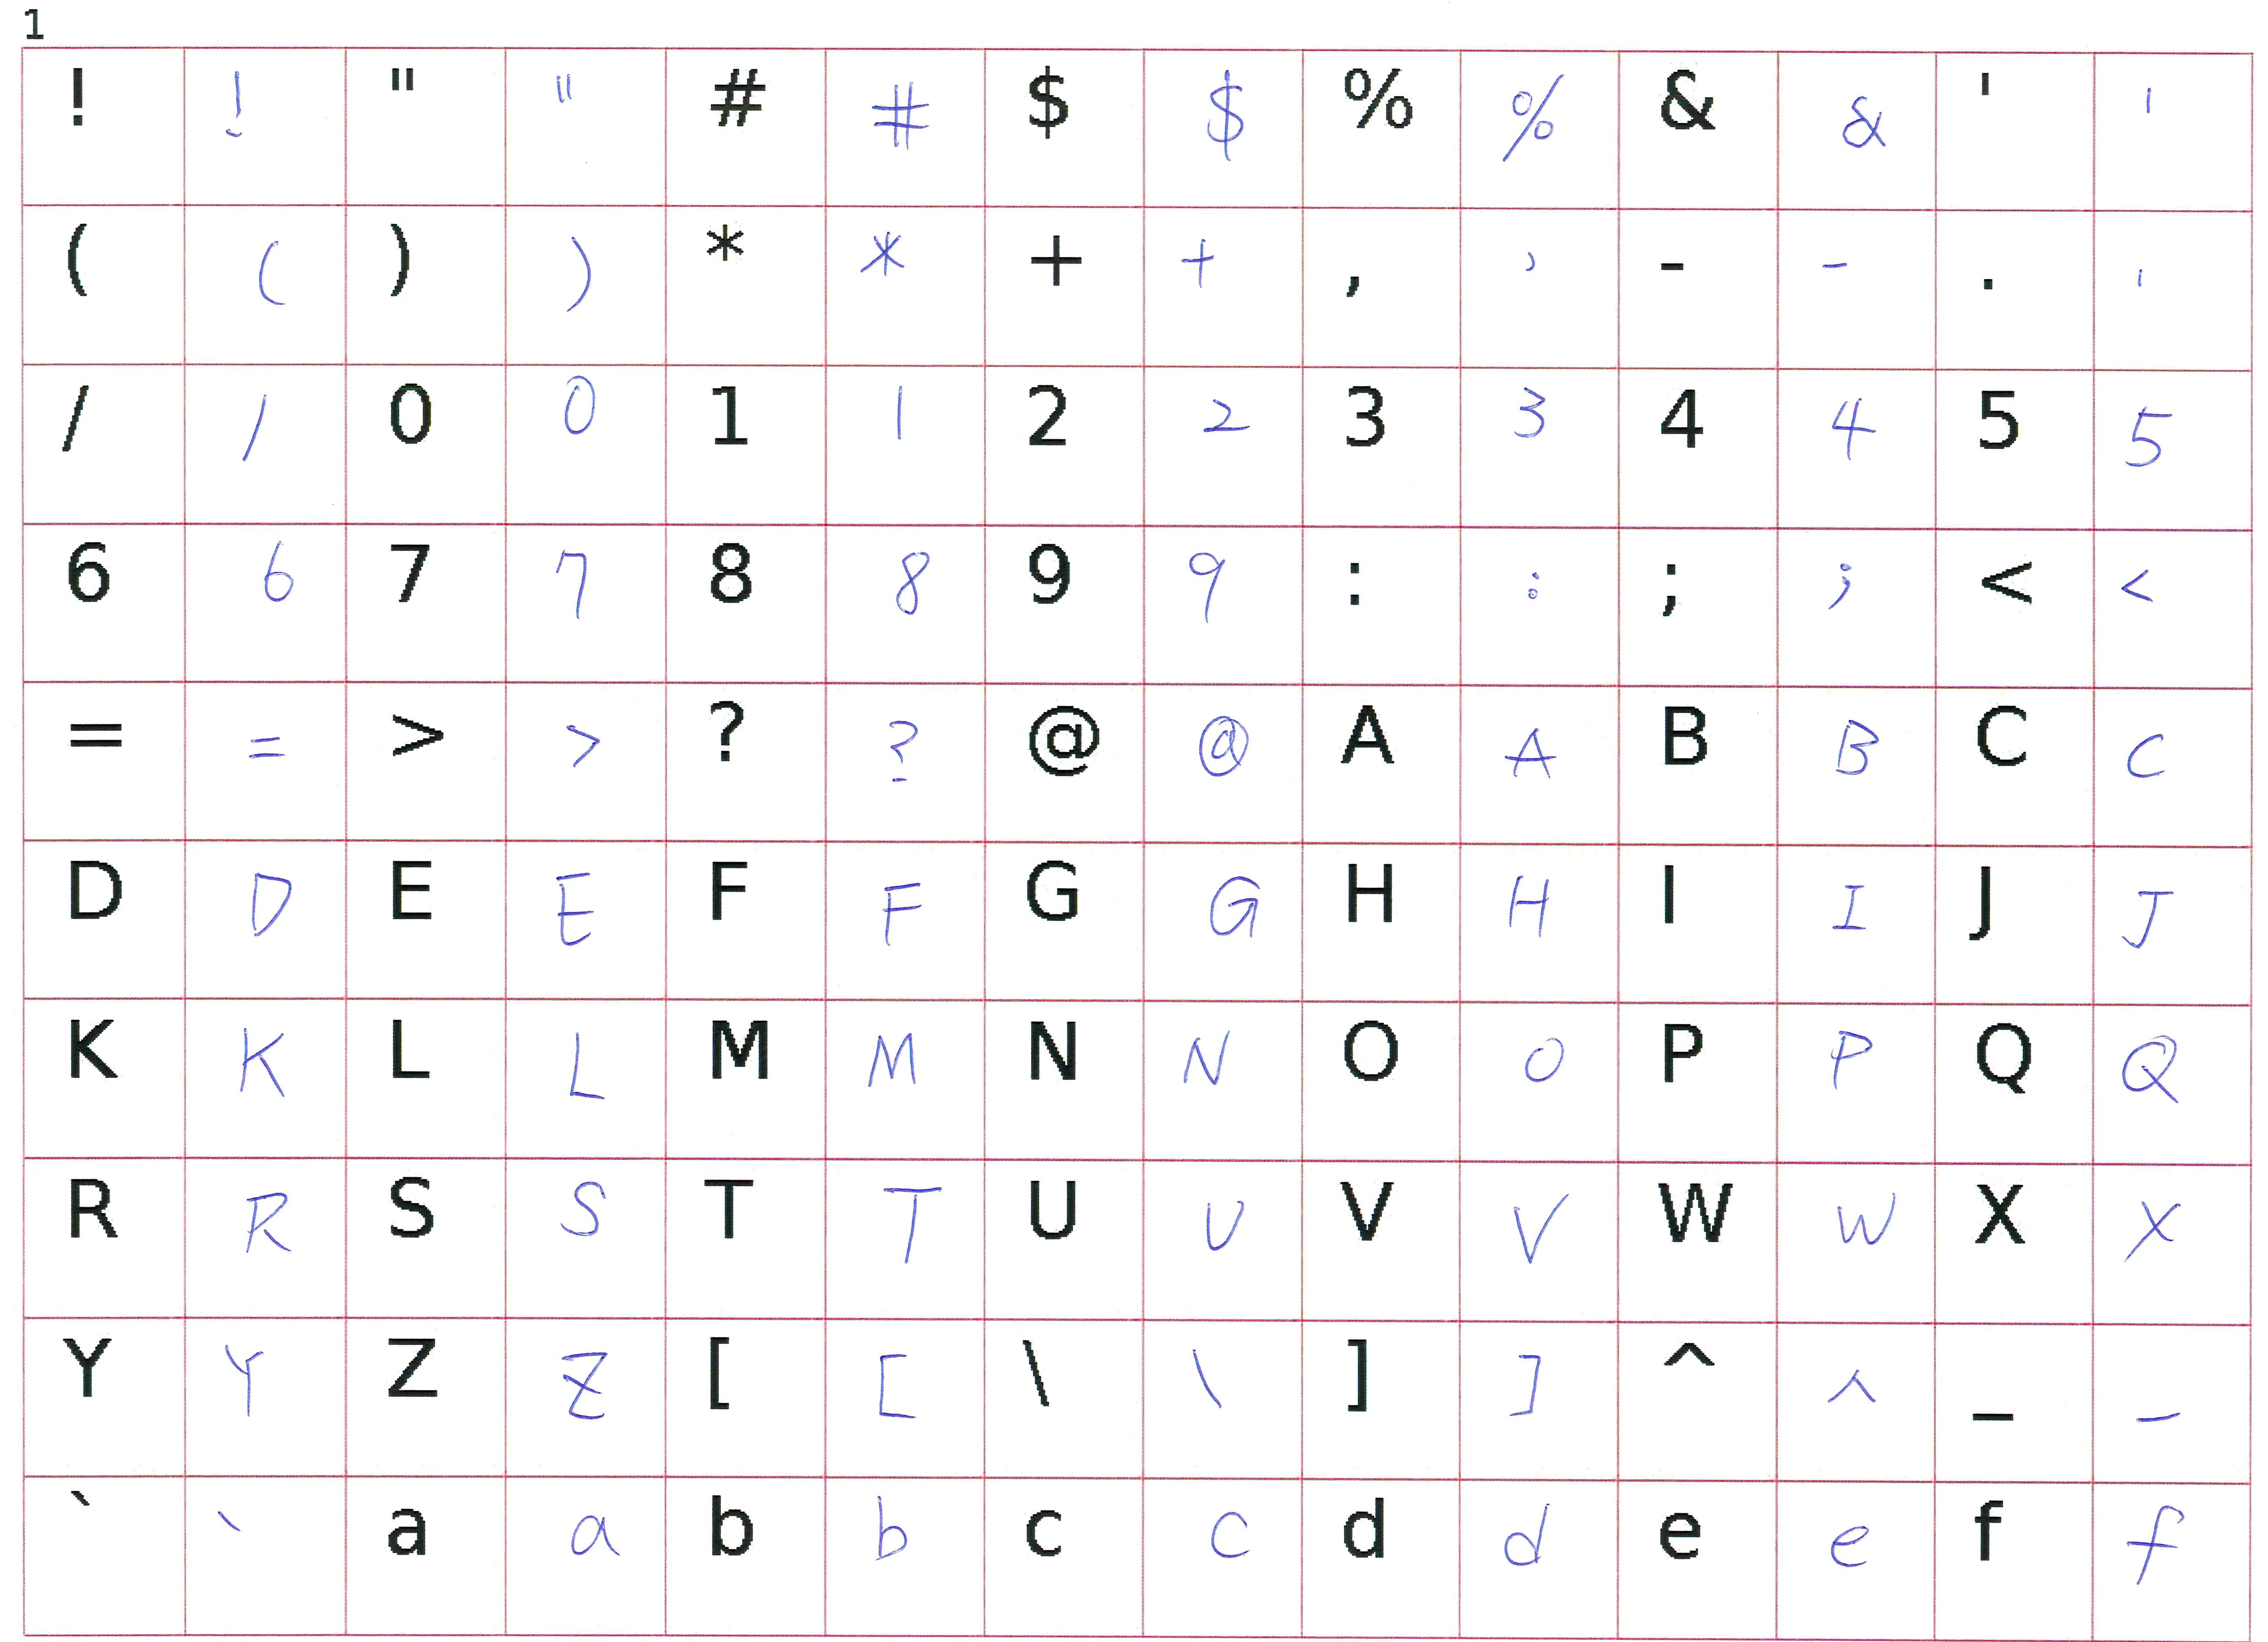 1
! ! " " # # $ $ % % & & ' '
( ( ) ) * * + + , , - - . .
/ / 0 0 1 1 2 2 3 3 4 4 5 5
6 6 7 7 8 8 9 9 : : ; ; < <
= = > > ? ? @ @ A A B B C C
D D E E F F G G H H I I J J
K K L L M M N N O O P P Q Q
R R S S T T U U V V W W X X
Y Y Z Z [ [ \ \ ] ] ^ ^ _ _
` ` a a b b c c d d e e f f